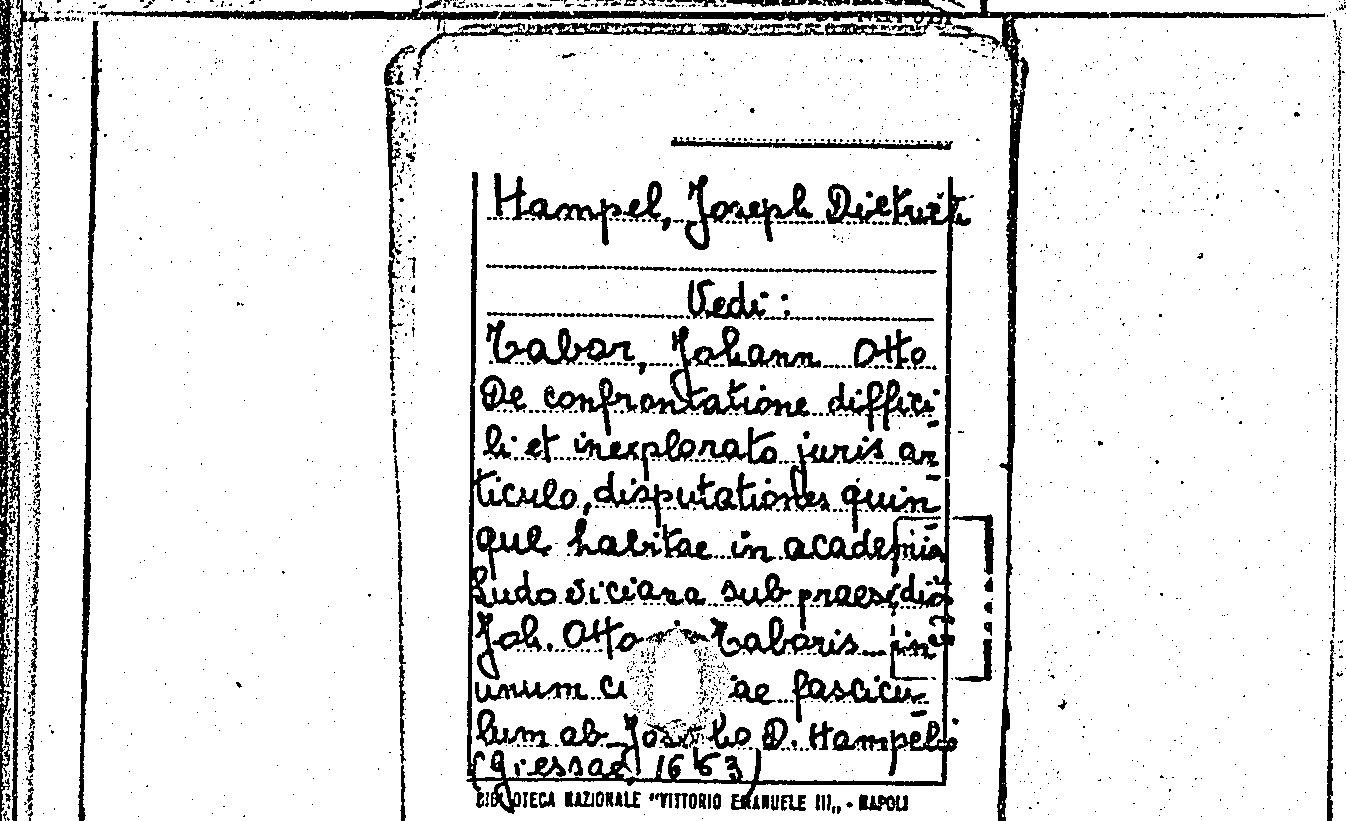 Hampel, Joseph
Vedi:
Tabor, Johann Otto
De confrontatione diffici
li et inexplorato juris ar
ticulo, disputationes quin
que habitae in academia
Ludoviciana sub praesidio
Joh. Otto Tabaris in
unum fascicu
lum ab D. Hampelio
(Giessae, 1663)
BIBLIOTECA NAZIONALE "VITTORIO EMANUELE III„ - NAPOLI